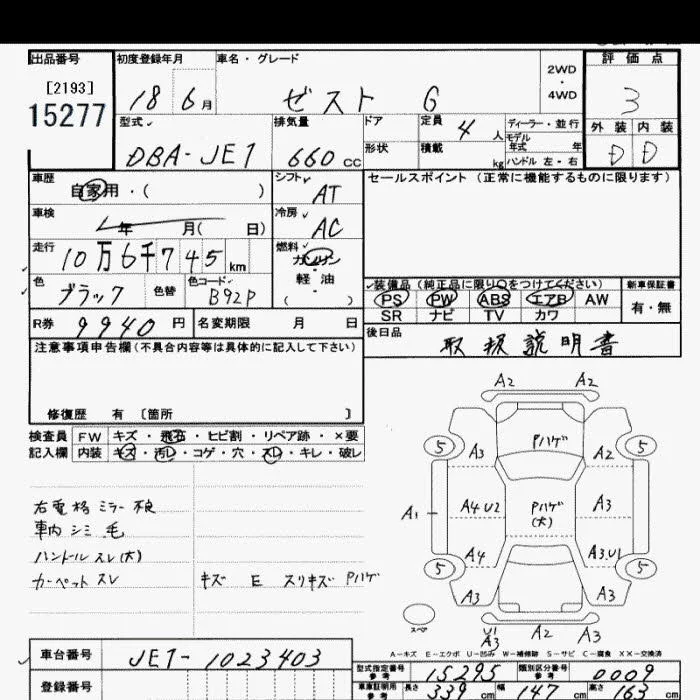 出品番号 初度登録年月 車名・グレード 2WD・4WD 評価点
[2193]
15277
18 6月 ゼスト G 3
型式 排気量 ドア 定員 4人 ディーラー・並行 外装 内装
モデル年式 年
DBA-JE1 660cc 形状 積載 kg ハンドル 左・右 D D
車歴 シフト セールスポイント (正常に機能するものに限ります)
自家用・( ) AT
車検 冷房
年 月( 日) AC
走行 燃料
10万6千745km ガソリン
軽油
( )
色 ブラック 色替 色コード B92P
装備品(純正品に限り○をつけてください) 新車保証書
PS PW ABS エアB AW 有・無
SR ナビ TV カワ
R券 9940円 名変期限 月 日 後日品
取扱説明書
注意事項申告欄(不具合内容等は具体的に記入して下さい)
修復歴 有 〔箇所 〕
検査員 FW キズ・飛石・ヒビ割・リペア跡・×要
記入欄 内装 キズ・汚レ・コゲ・穴・スレ・キレ・破レ
右電格ミラー不良
車内シミ 毛
ハンドルスレ(大)
カーペットスレ キズ E スリキズ Pハゲ
A2 A2
5 A3 Pハゲ A2 5
A1 A4 U2 Pハゲ(大) A3
5 A4 A3.U1 5
A3 A3
スペア U1 A3 A2 A3
A-キズ E-エクボ U-凹み W-補修跡 S-サビ C-腐食 XX-交換済
車台番号 JE1-1023403
型式指定番号 参考 15295 類別区分番号 参考 0009
登録番号
車庫証明用 参考 長さ 339cm 幅 147cm 高さ 163cm